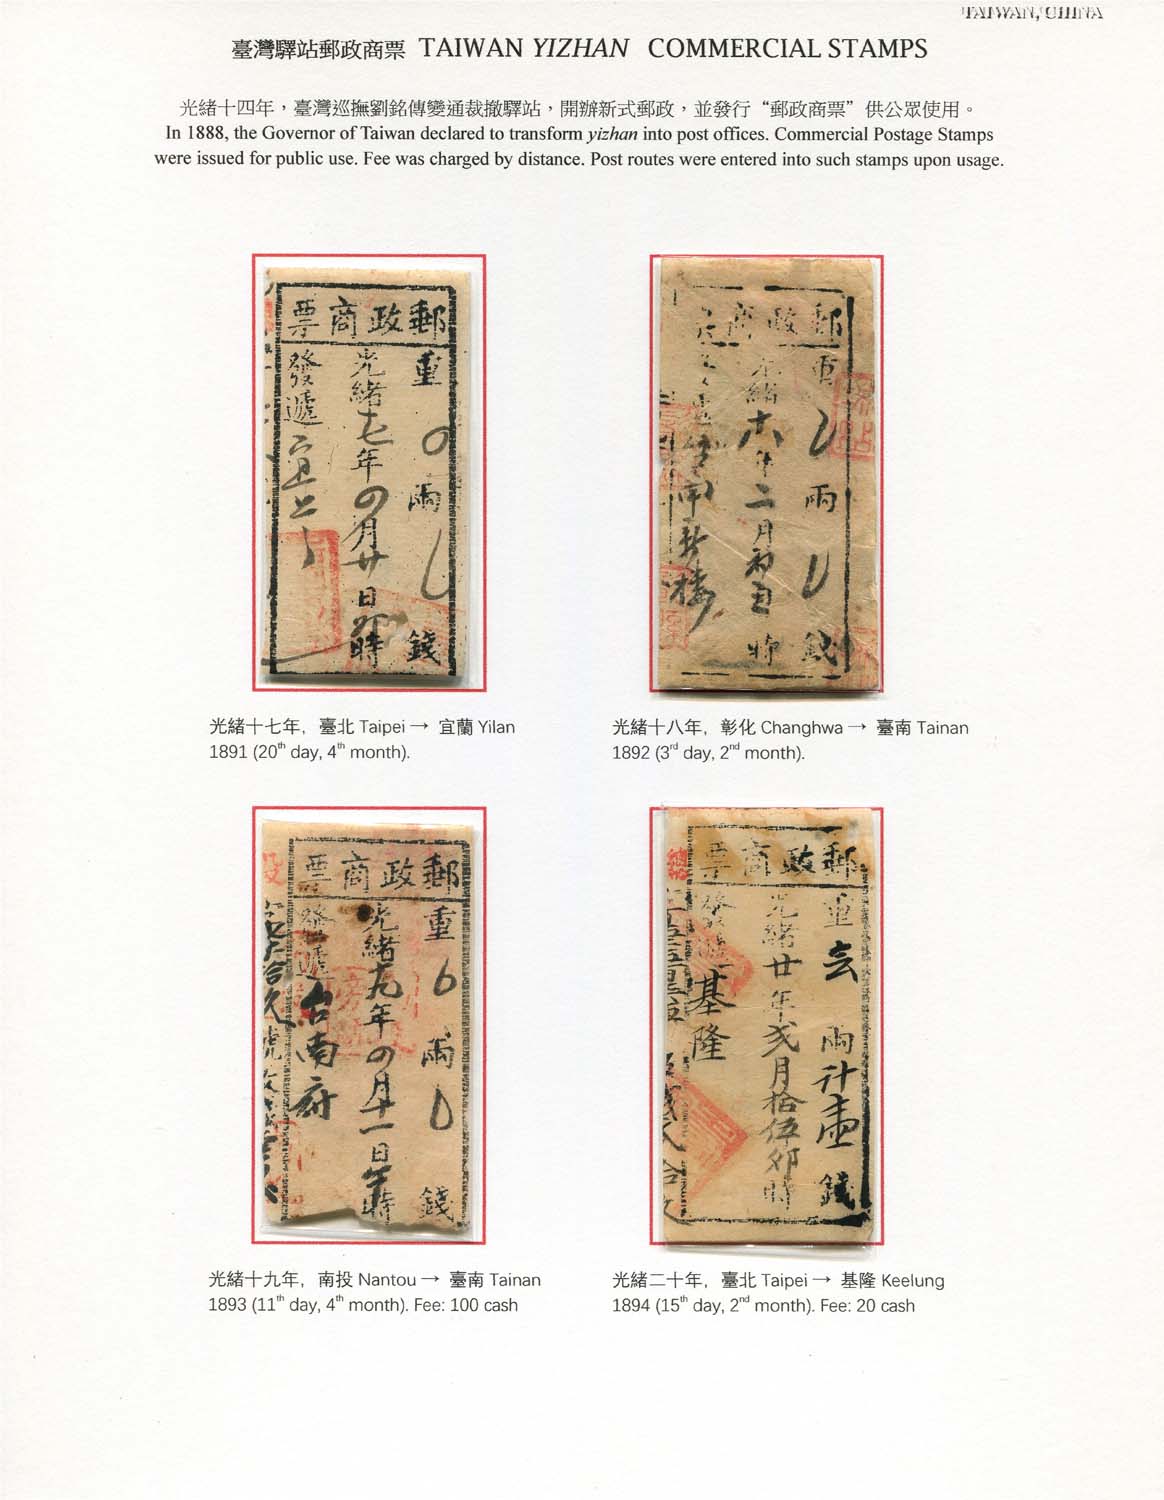 TAIWAN, CHINA
臺灣驛站郵政商票 TAIWAN YIZHAN COMMERCIAL STAMPS
光緒十四年，臺灣巡撫劉銘傳變通裁撤驛站，開辦新式郵政，並發行“郵政商票”供公眾使用。
In 1888, the Governor of Taiwan declared to transform yizhan into post offices. Commercial Postage Stamps
were issued for public use. Fee was charged by distance. Post routes were entered into such stamps upon usage.
郵政商票
重 兩 錢
光緒十七年四月廿日卯時
發遞
郵政商
重 兩 錢
光緒十八年二月初五時
光緒十七年, 臺北 Taipei → 宜蘭 Yilan
1891 (20th day, 4th month).
光緒十八年, 彰化 Changhwa → 臺南 Tainan
1892 (3rd day, 2nd month).
郵政商票
重 兩 錢
光緒十九年四月十一日午時
發遞台南府
郵政商票
重 兩計壹錢
光緒廿年貳月拾伍卯時
發遞基隆
光緒十九年, 南投 Nantou → 臺南 Tainan
1893 (11th day, 4th month). Fee: 100 cash
光緒二十年, 臺北 Taipei → 基隆 Keelung
1894 (15th day, 2nd month). Fee: 20 cash